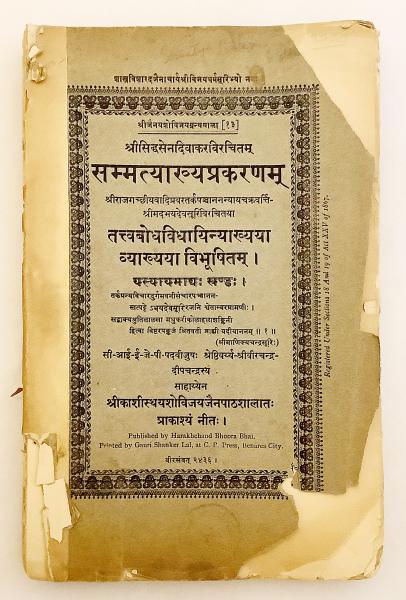 शास्त्रविशारदजैनाचार्यश्रीविजयधर्मसूरिभ्यो नमः
श्रीजैनयशोविजयग्रन्थमाला [१३]
श्रीसिद्धसेनदिवाकरविरचितम्
सम्मत्याख्यप्रकरणम्
श्रीराजगच्छीयवादिप्रवरतर्कपञ्चाननन्यायचक्रवर्त्ति-
श्रीमदभयदेवसूरिविरचितया
तत्त्वबोधविधायिन्याख्यया
व्याख्यया विभूषितम् ।
यस्यायमाद्यः खण्डः ।
(श्रीमाणिक्यचन्द्रसूरिः)
सी-आई-ई-जे-पी-पदवीजुषः श्रेष्ठिवर्य्य-श्रीवीरचन्द्र-
दीपचन्द्रस्य
साहाय्येन
श्रीकाशीस्थयशोविजयजैनपाठशालातः
प्राकाश्यं नीतः ।
Published by Harakhchand Bhoora Bhai.
Printed by Gauri Shanker Lal, at C. P. Press, Benares City.
वीरसंवत् २४३६ ।
Registered Under Sections 18 And 19 of Act XXV of 1867.